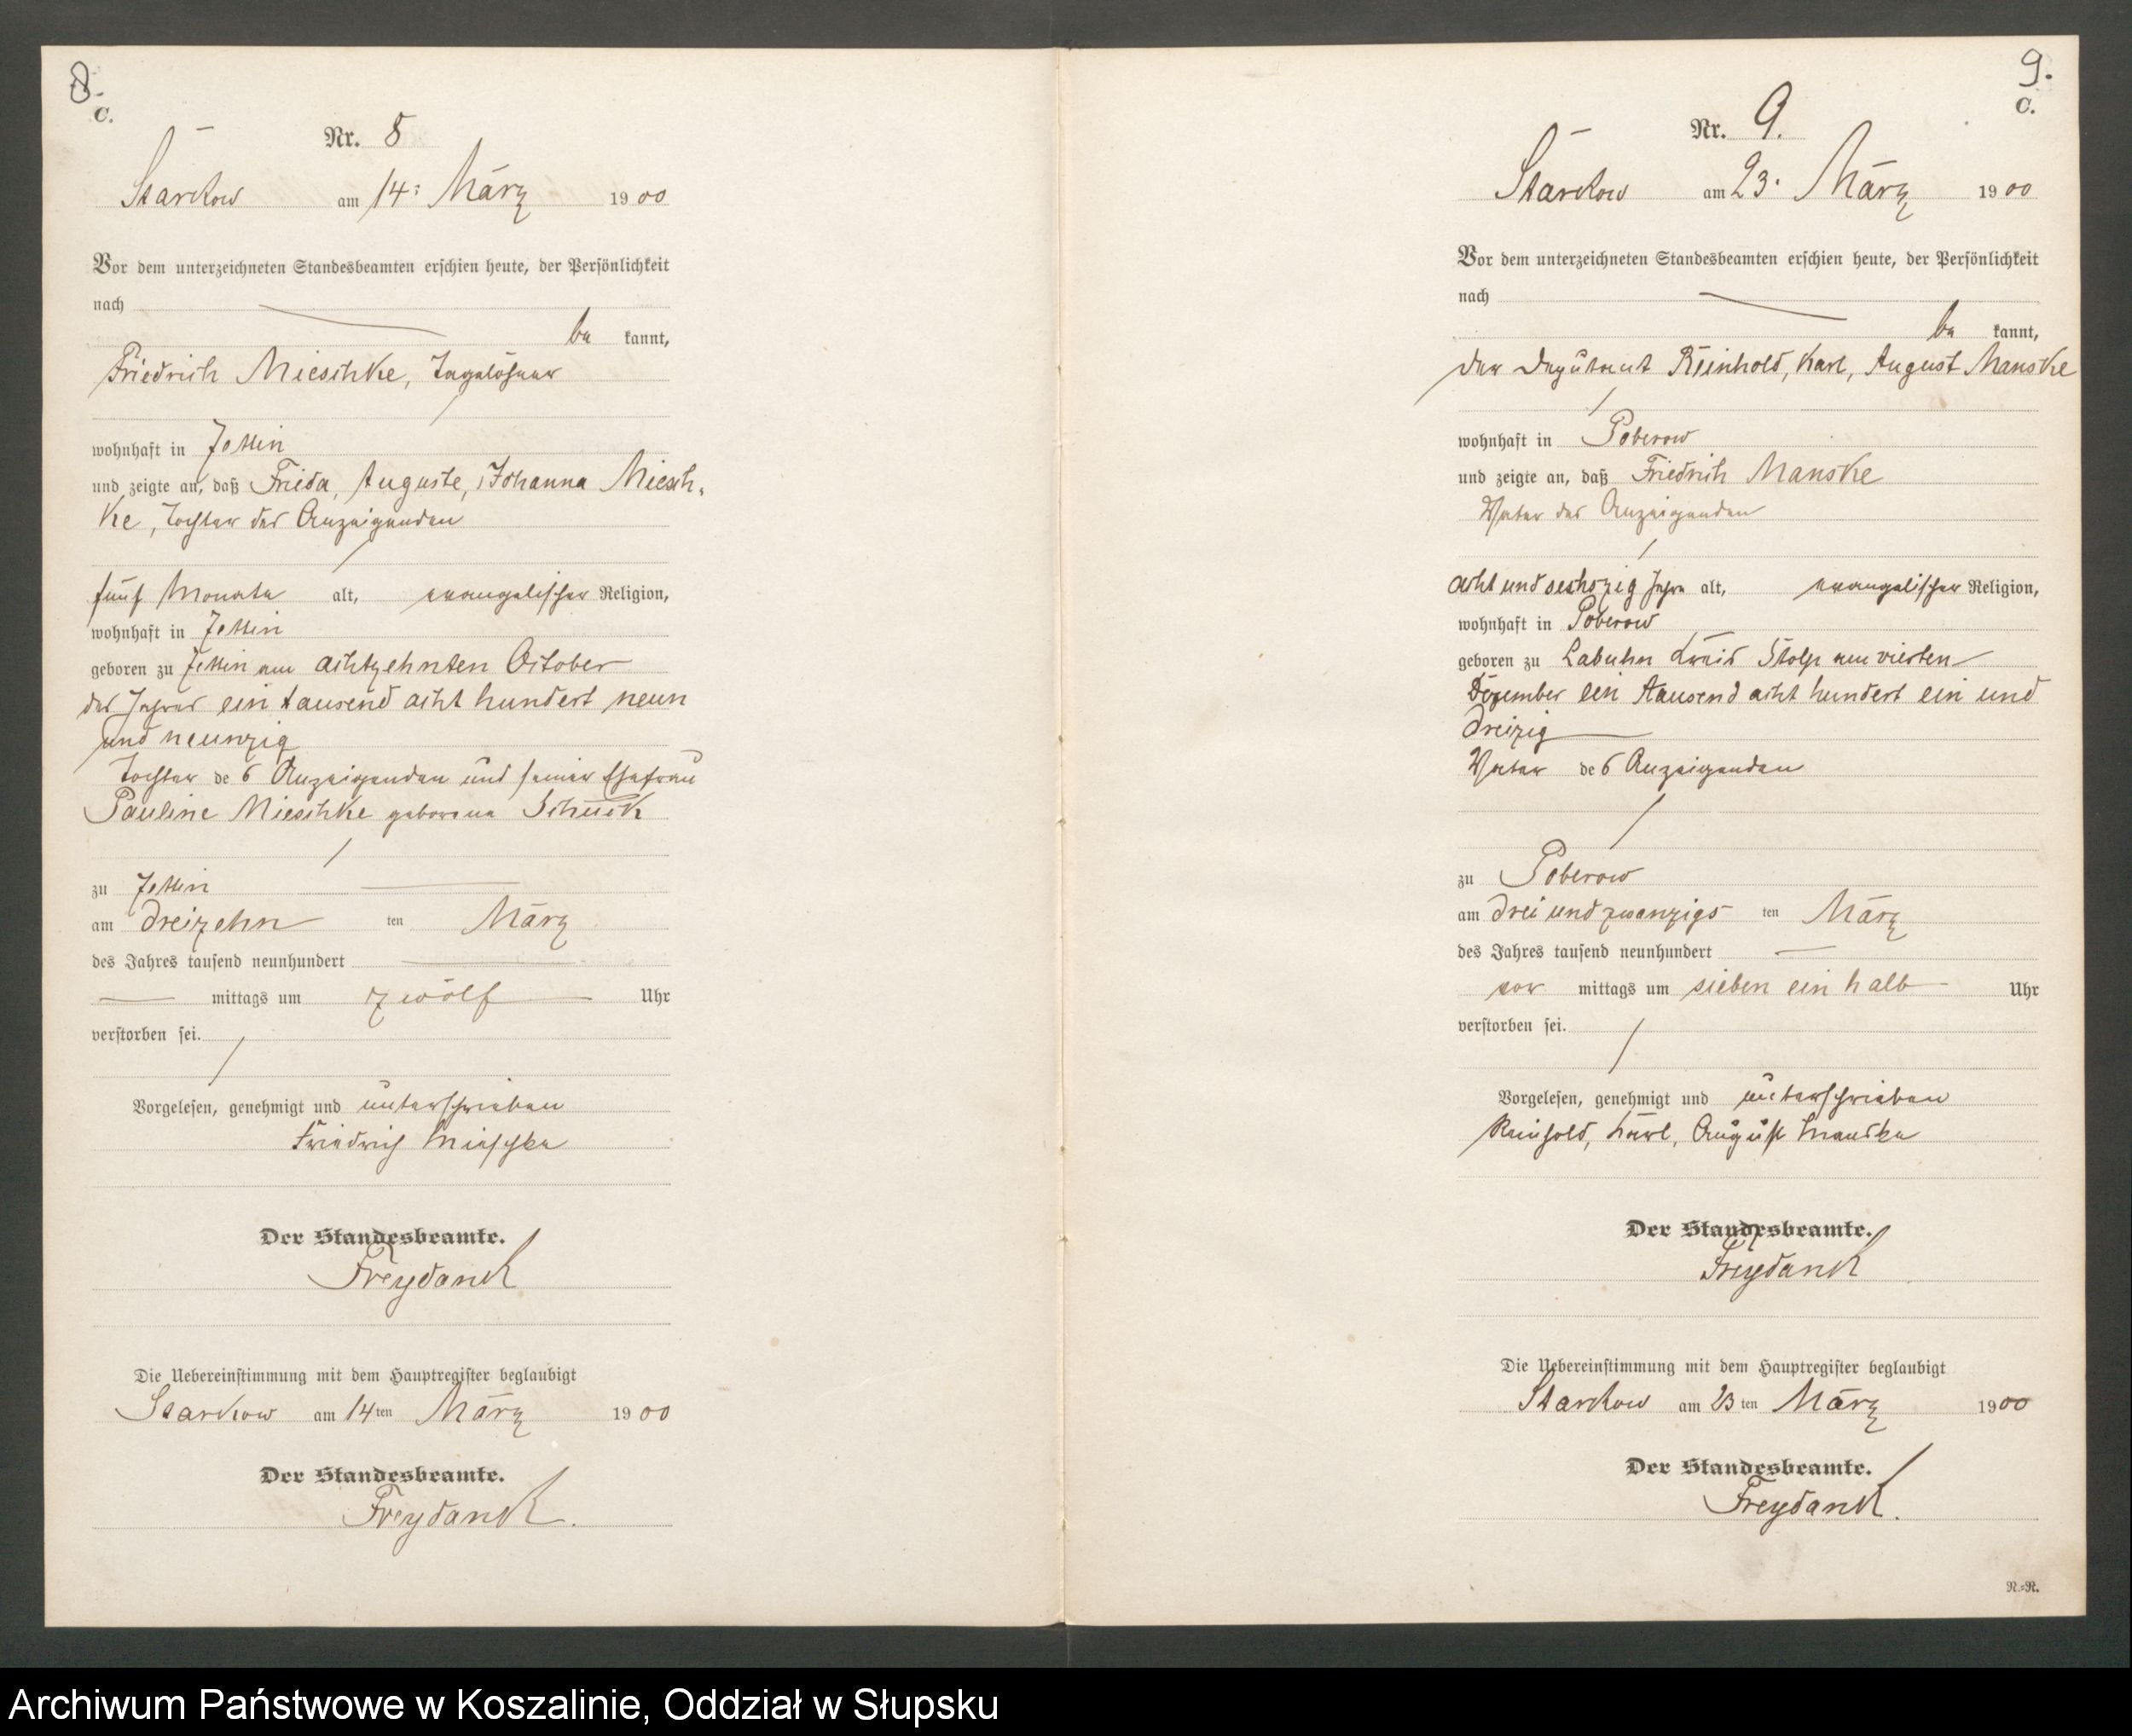 8.
C.
Nr. 8
Starckow am 14. März 1900
Vor dem unterzeichneten Standesbeamten erschien heute, der Persönlichkeit
nach
be kannt,
Friedrich Mieschke, Tagelöhner
wohnhaft in
und zeigte an, daß Frieda, Auguste, Johanna Miesch-
ke, Tochter des Anzeigenden
fünf Monate alt, evangelischer Religion,
wohnhaft in
geboren zu am achtzehnten October
des Jahres ein tausend acht hundert neun
und neunzig
Tochter des Anzeigenden und seiner Ehefrau
Pauline Mieschke geborene
zu
am dreizehn ten März
des Jahres tausend neunhundert
mittags um zwölf Uhr
verstorben sei.
Vorgelesen, genehmigt und unterschrieben
Friedrich Mieschke
Der Standesbeamte.
Freydanck
Die Uebereinstimmung mit dem Hauptregister beglaubigt
Starckow am 14ten März 1900
Der Standesbeamte.
Freydanck.
9.
C.
Nr. 9.
Starckow am 23. März 1900
Vor dem unterzeichneten Standesbeamten erschien heute, der Persönlichkeit
nach
be kannt,
der Deputant Reinhold, Karl, August Manske
wohnhaft in Poberow
und zeigte an, daß Friedrich Manske
Vater des Anzeigenden
acht und sechszig Jahre alt, evangelischer Religion,
wohnhaft in Poberow
geboren zu Labuhn Kreis Stolp am vierten
Dezember ein tausend acht hundert ein und
dreizig
Vater des Anzeigenden
zu Poberow
am drei und zwanzigs ten März
des Jahres tausend neunhundert
vor mittags um sieben ein halb Uhr
verstorben sei.
Vorgelesen, genehmigt und unterschrieben
Reinhold, Karl, August Manske
Der Standesbeamte.
Freydanck
Die Uebereinstimmung mit dem Hauptregister beglaubigt
Starckow am 23ten März 1900
Der Standesbeamte.
Freydanck.
R.-R.
Archiwum Państwowe w Koszalinie, Oddział w Słupsku